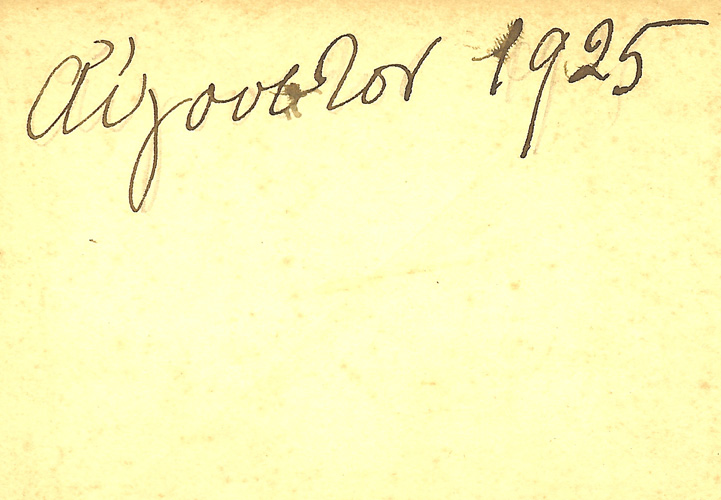 Αύγουστον 1925